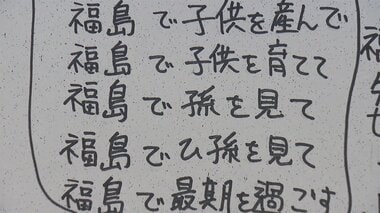 福島で子供を産んで
福島で子供を育てて
福島で孫を見て
福島でひ孫を見て
福島で最期を過ごす
福